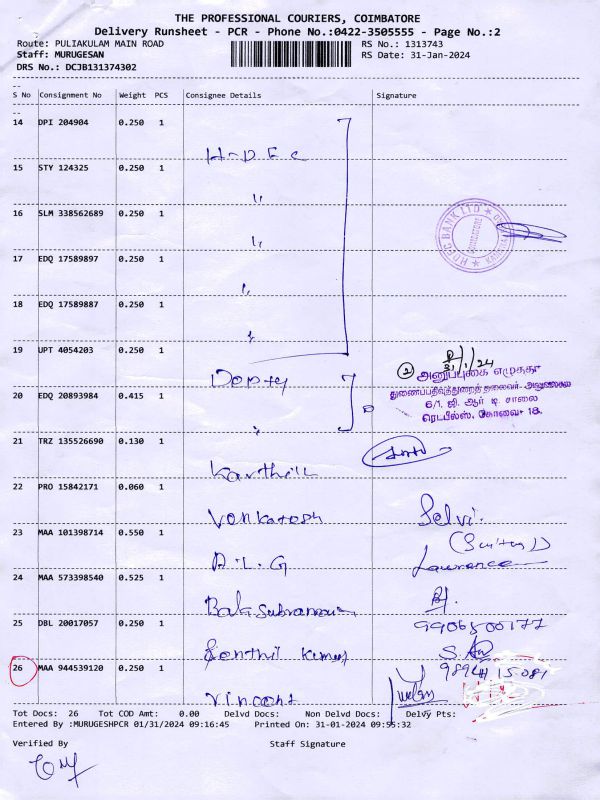 THE PROFESSIONAL COURIERS, COIMBATORE
Delivery Runsheet - PCR - Phone No.:0422-3505555 - Page No.:2
Route: PULIAKULAM MAIN ROAD RS No.: 1313743
Staff: MURUGESAN RS Date: 31-Jan-2024
DRS No.: DCJB131374302
S No Consignment No Weight PCS Consignee Details Signature
14 DPI 204904 0.250 1
H-DFC
15 STY 124325 0.250 1
"
16 SLM 338562689 0.250 1
"
HDFC BANK LTD
COIMBATORE
17 EDQ 17589897 0.250 1
"
18 EDQ 17589887 0.250 1
"
19 UPT 4054203 0.250 1
31/1/24
2 அனுப்புகை எழுத்தர்
துணைப்பதிவுத்துறைத் தலைவர் அலுவலகம்
20 EDQ 20893984 0.415 1
6/1, ஜி. ஆர் டி. சாலை
ரெட்பீல்ஸ், கோவை- 18.
"
21 TRZ 135526690 0.130 1
Karthik
22 PRO 15842171 0.060 1
Venkatesh Selvi.
23 MAA 101398714 0.550 1
A.L.G Lawrence
24 MAA 573398540 0.525 1
Balasubramani
25 DBL 20017057 0.250 1 9906500177
Senthil Kumar
26 MAA 944539120 0.250 1
Vincent
Tot Docs: 26 Tot COD Amt: 0.00 Delvd Docs: Non Delvd Docs: Delvy Pts:
Entered By :MURUGESHPCR 01/31/2024 09:16:45 Printed On: 31-01-2024 09:55:32
Verified By Staff Signature